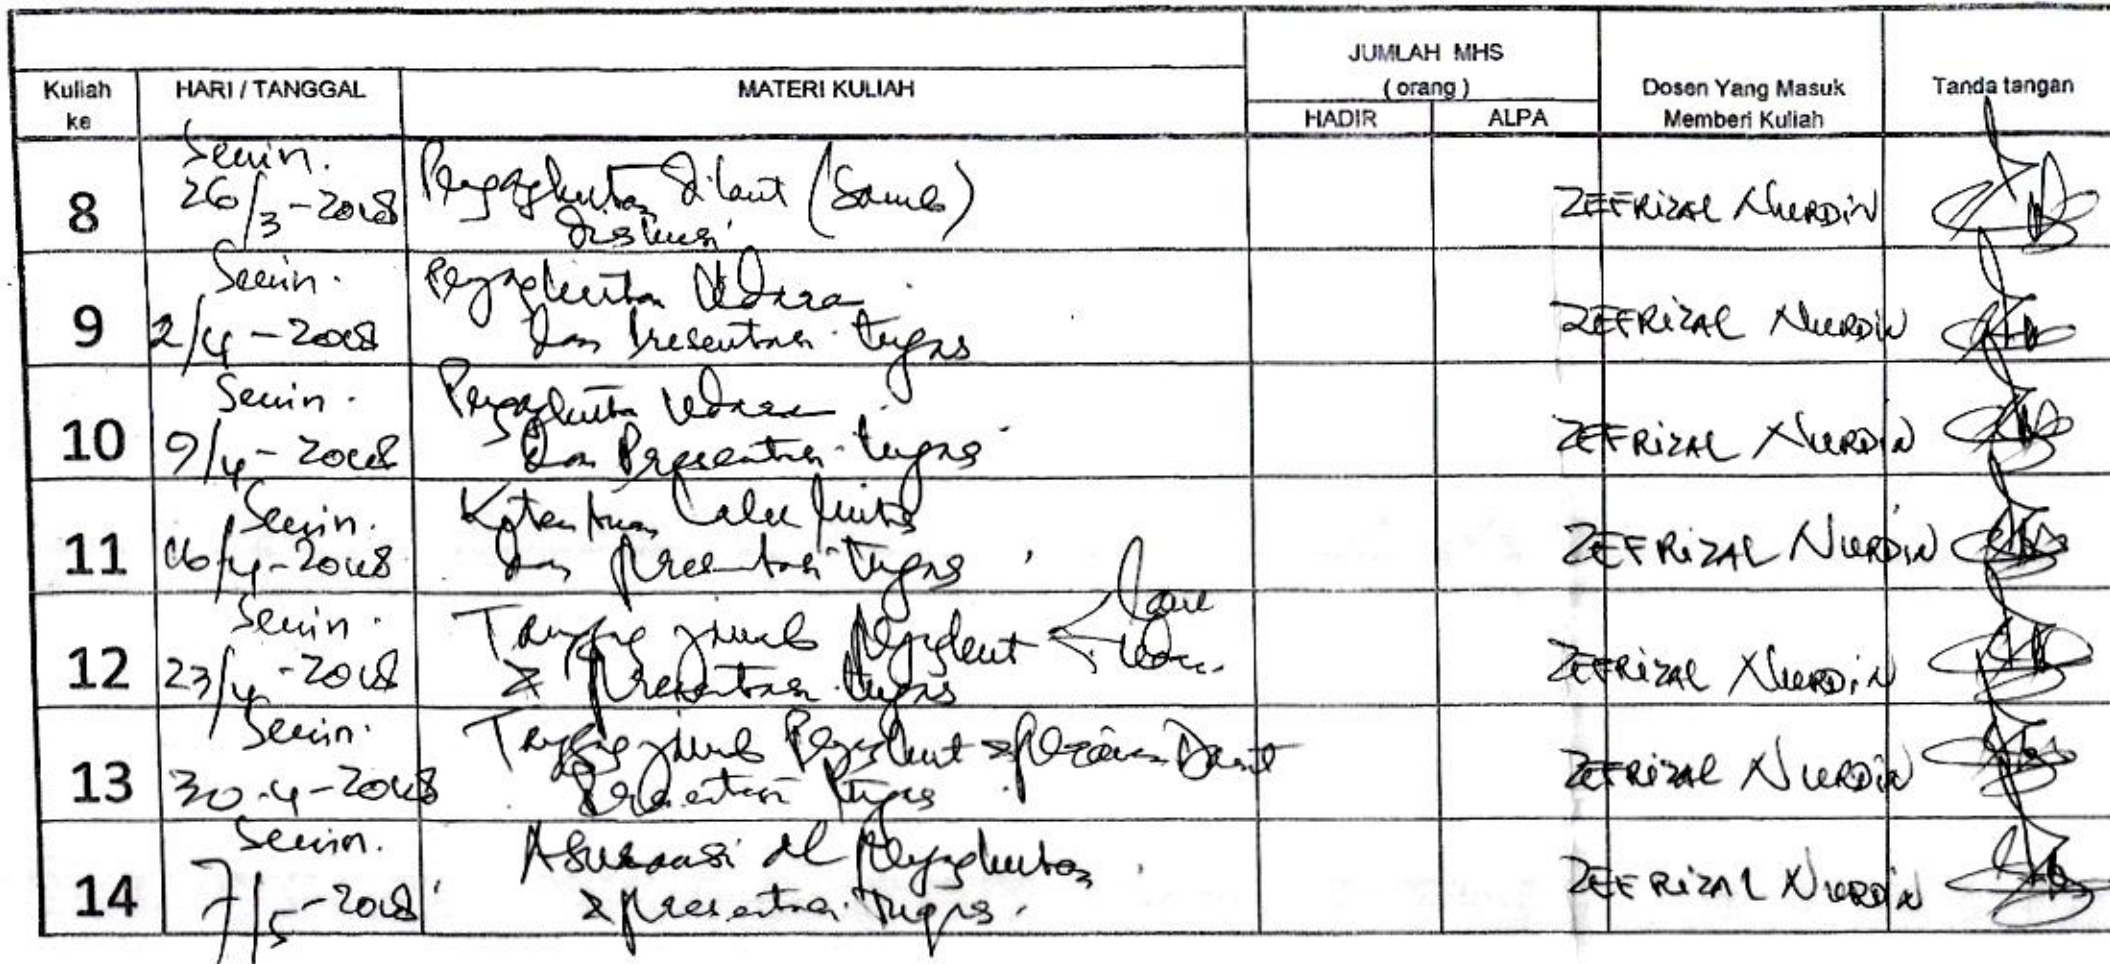 JUMLAH MHS
Kuliah ke HARI / TANGGAL MATERI KULIAH ( orang ) Dosen Yang Masuk Memberi Kuliah Tanda tangan
HADIR ALPA
8 Senin. 26/3-2018 Pengangkutan dilaut
Diskusi ZEFRIZAL NURDIN
9 Senin. 2/4-2018 Pengangkutan Udara
dan Presentasi tugas ZEFRIZAL NURDIN
10 Senin. 9/4-2018 Pengangkutan Udara
dan Presentasi tugas ZEFRIZAL NURDIN
11 Senin. 16/4-2018 Ketentuan Lalu lintas
dan presentasi tugas ZEFRIZAL NURDIN
12 Senin. 23/4-2018 Tanggung jawab Pengangkut
presentasi tugas ZEFRIZAL NURDIN
13 Senin. 30-4-2018 Tanggung jawab Pengangkut
Presentasi tugas ZEFRIZAL NURDIN
14 Senin. 7/5-2018 Asuransi dl Pengangkutan
presentasi tugas. ZEFRIZAL NURDIN